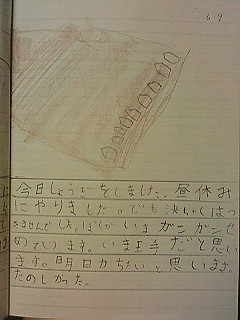 69
今日しょうぎをしました。昼休み
にやりました。でも決ちゃくはつ
きませんでした。ぼくがいまガンガンせ
めています。いま王手だと思い
ます。明日かちたいと思います。
たのしかった。